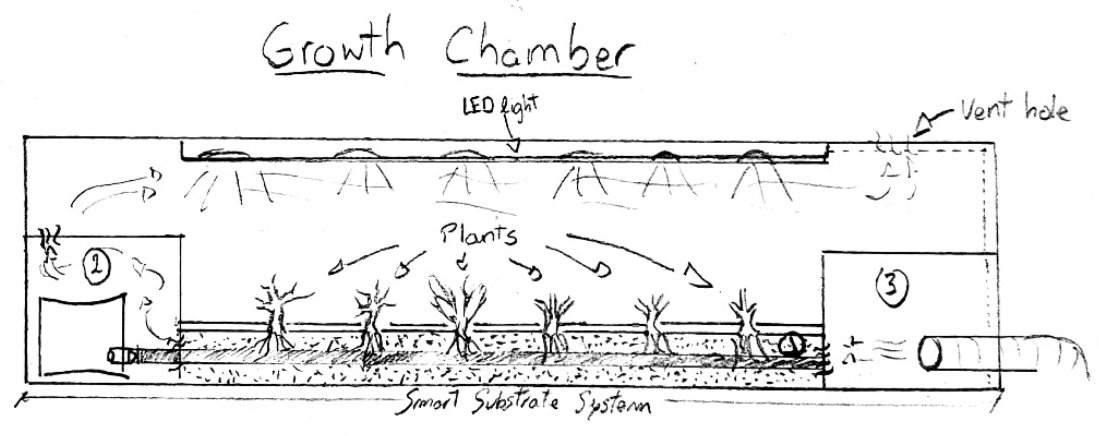 Growth Chamber
LED light
Vent hole
Plants
2
3
1
Smart Substrate System